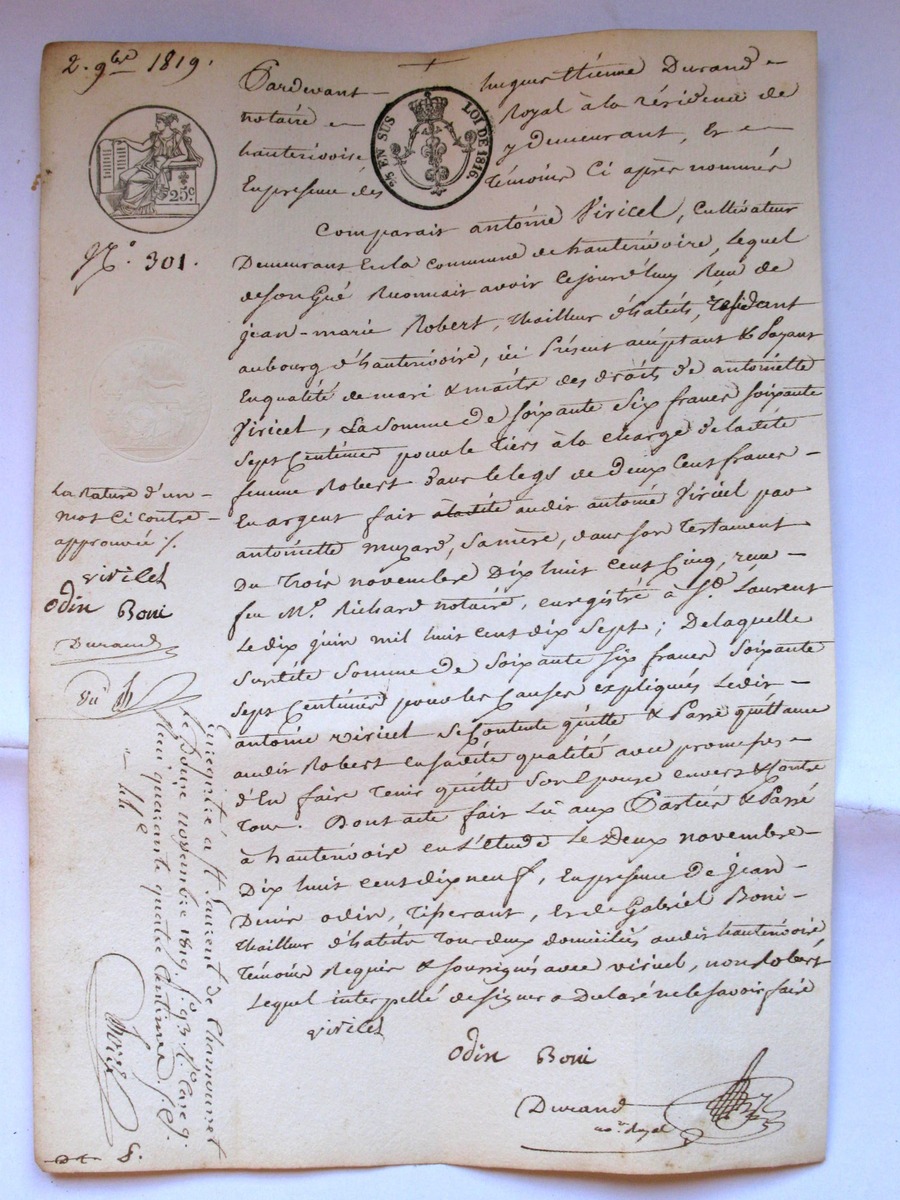 2. 9bre 1819.
25 c.
2/5 EN SUS LOI DE 1816.
N.º 301.
Pardevant hugues Etienne Durand
notaire Royal à la résidence de
hauterivoire y demeurant, Et en
En presence des témoins Ci après nommés
Comparait antoine Viricel, Cultivateur
Demeurant En la commune de hauterivoire, Lequel
de son Gré Reconnait avoir cejourd'huy Reçu de
jean-marie Robert, thailleur d'habits, résidant
au bourg d'hauterivoire, ici Présent acceptant & Payant
En qualité de mari & maitre des droits de antoinette
Viricel, La somme de soixante Six francs soixante
Sept Centimes pour le tiers à la charge de ladite
femme Robert dans le legs de deux Cent francs
En argent fait à ladite audit antoine Viricel par
antoinette muzard, sa mère, dans son testament
Du trois novembre Dix huit cent Cinq, reçu
feu Me. Richard notaire, enregistré à St. Laurent
Le dix juin mil huit cent dix sept; De laquelle
Susdite Somme de Soixante six francs Soixante
Sept Centimes pour les Causes expliquées Ledit
antoine viricel Se Contente quitte & Passe quittance
audit Robert En sadite qualité avec promesse
d'En faire tenir quitte Son Epouse envers & contre
tous. Dont acte fait Lû aux Parties & Passé
à hauterivoire en L'étude Le Deux novembre
Dix huit cent dix neuf, En presence de jean
Denis odin, tisserant, Et de Gabriel Boni
thailleur d'habits tous deux domiciliés audit hauterivoire
témoins Requis & soussignés avec viricel, non Robert
Lequel interpellé de signer a Déclaré ne le savoir faire
viricel
odin Boni
Durand
nore. Royal
La Rature d'un
mot Ci contre
approuvée /.
viricel
odin Boni
Durand
Enregistré à St Laurent de Chamousset
Le Douze novembre 1819. fo. 93
quarante quatre Centimes